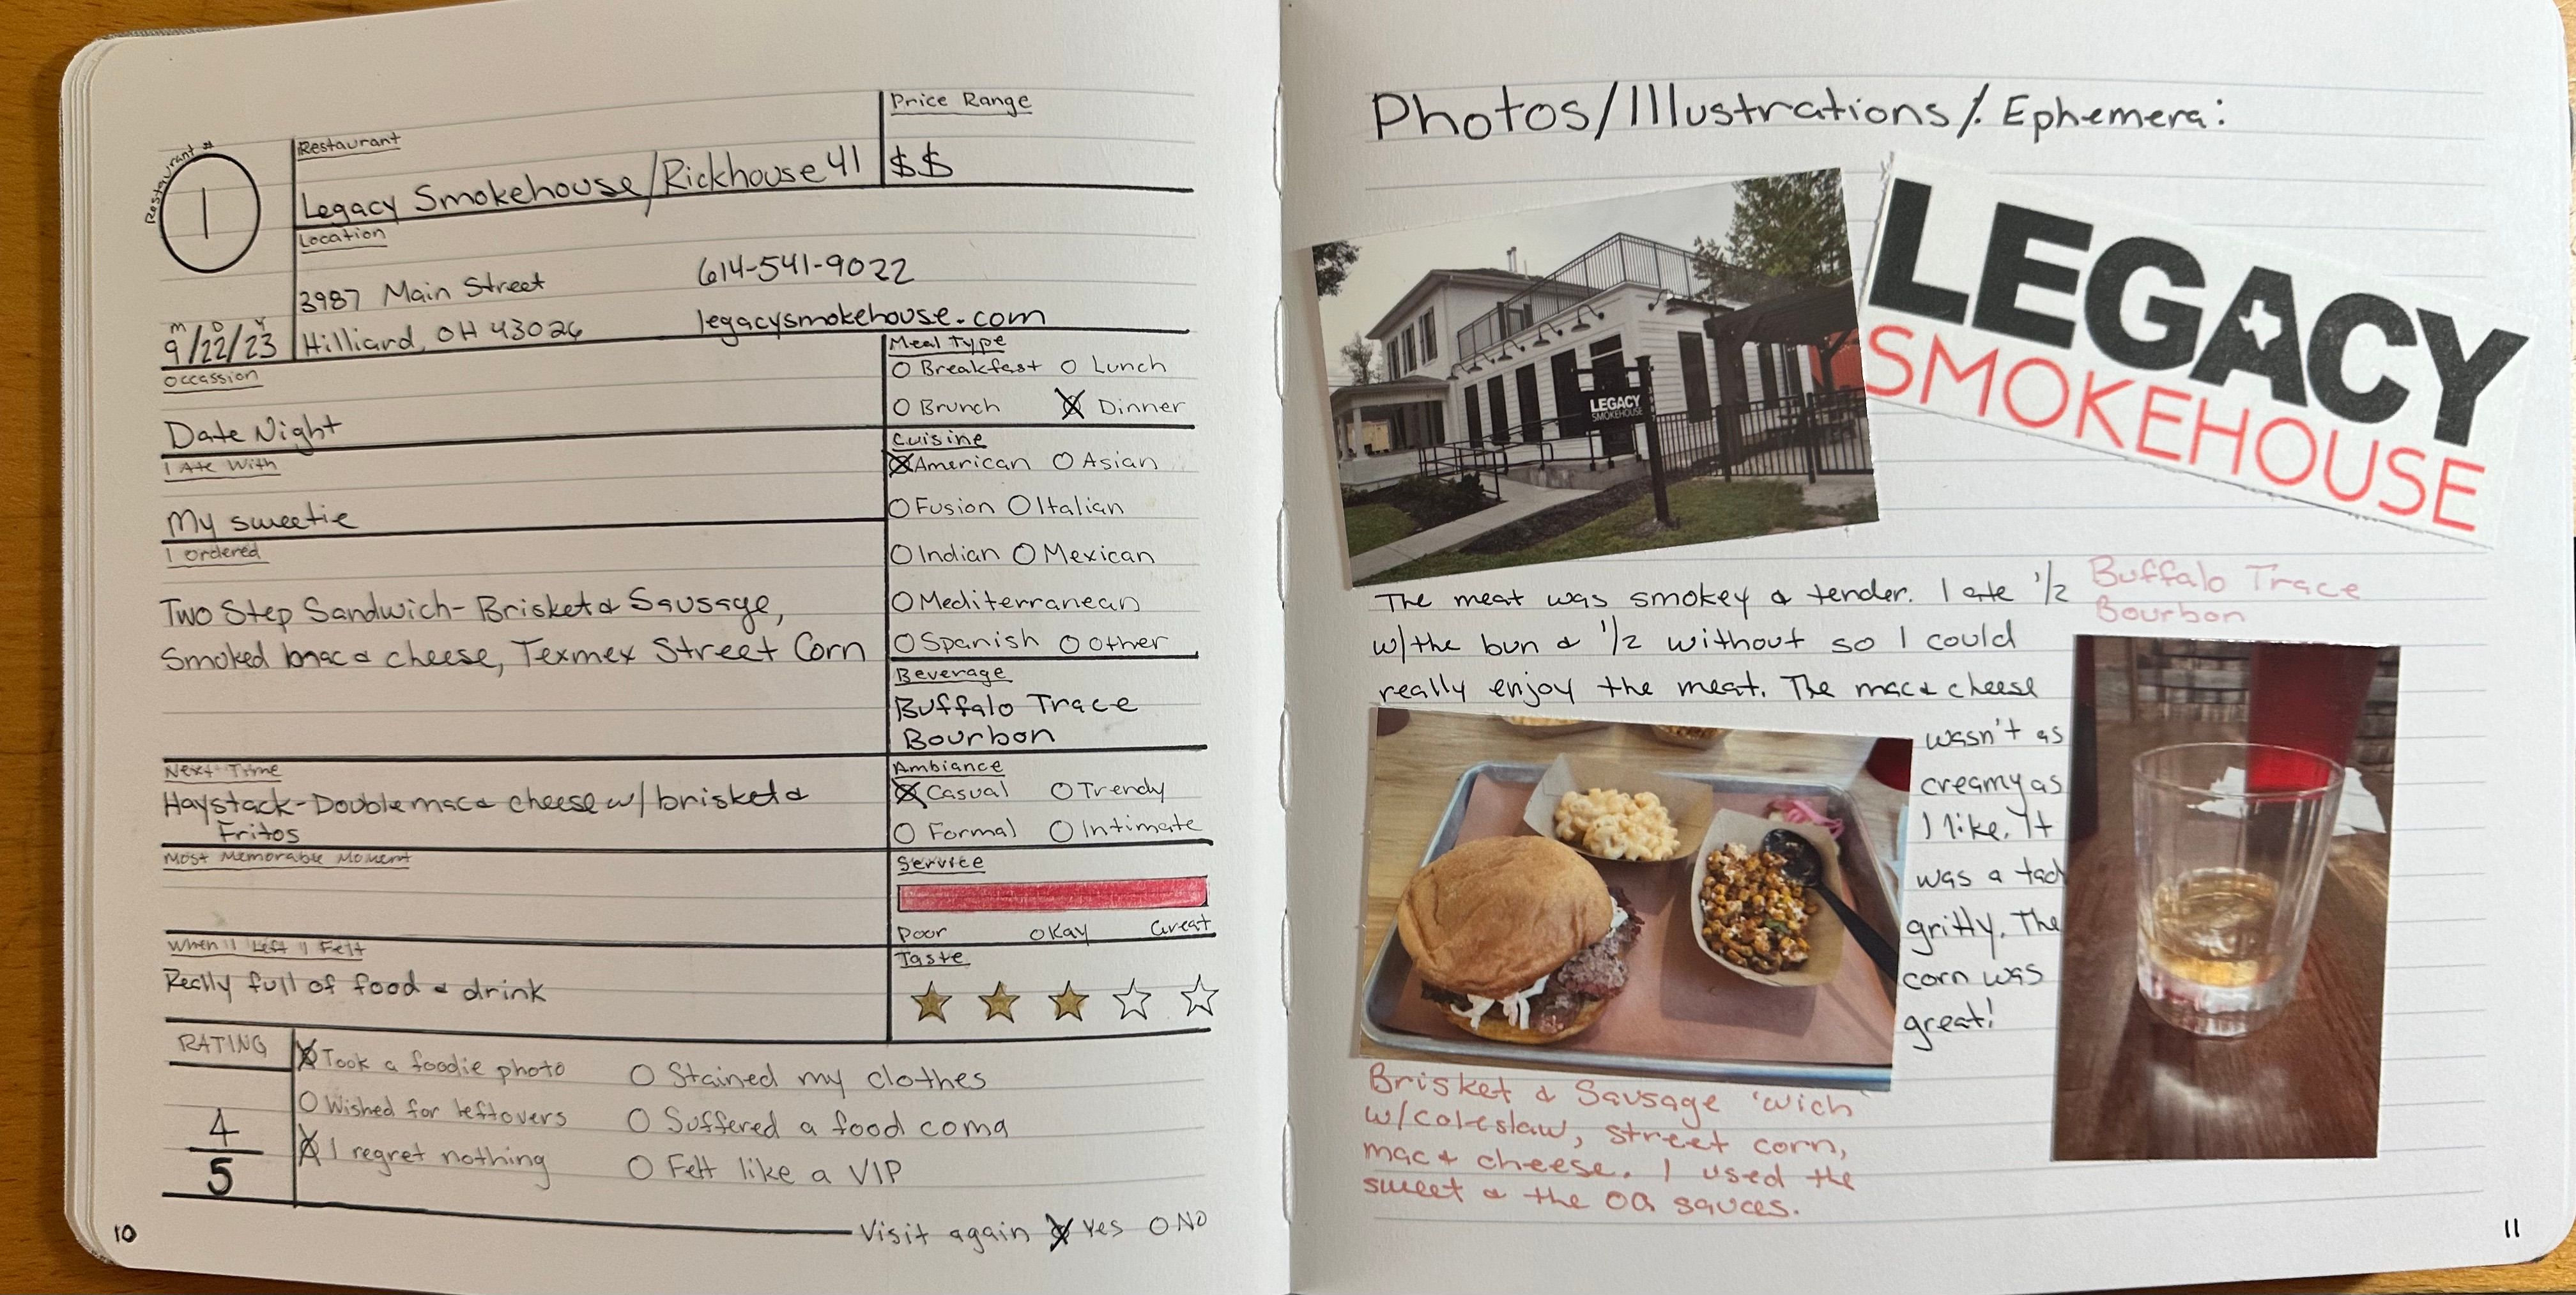 Restaurant #
1
Restaurant
Legacy Smokehouse/Rickhouse 41
Price Range
$$
Location
3987 Main Street
614-541-9022
Hilliard, OH 43026
legacysmokehouse.com
M D Y
9/22/23
Occassion
Date Night
I Ate With
My sweetie
I Ordered
Two Step Sandwich- Brisket & Sausage,
Smoked mac & cheese, Texmex Street Corn
Next Time
Haystack-Double mac & cheese w/ brisket &
Fritos
Most Memorable Moment
When I Left I Felt
Really full of food & drink
Meal Type
Breakfast Lunch
Brunch Dinner
Cuisine
American Asian
Fusion Italian
Indian Mexican
Mediterranean
Spanish Other
Beverage
Buffalo Trace
Bourbon
Ambiance
Casual Trendy
Formal Intimate
Service
Poor Okay Great
Taste
RATING
4
5
Took a foodie photo
Stained my clothes
Wished for leftovers
Suffered a food coma
I regret nothing
Felt like a VIP
Visit again Yes No
10
Photos/Illustrations/Ephemera:
LEGACY
SMOKEHOUSE
LEGACY
SMOKEHOUSE
The meat was smokey & tender. I ate 1/2
w/the bun & 1/2 without so I could
really enjoy the meat. The mac & cheese
wasn't as
creamy as
I like. It
was a tad
gritty. The
corn was
great!
Buffalo Trace
Bourbon
Brisket & Sausage 'wich
w/coleslaw, street corn,
mac & cheese. I used the
sweet & the OG sauces.
11